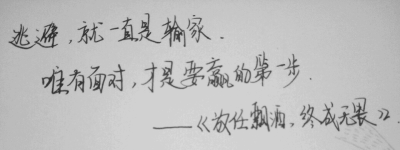 逃避,就一直是输家.
唯有面对,才是要赢的第一步.
——《放任飘洒、终成无畏》